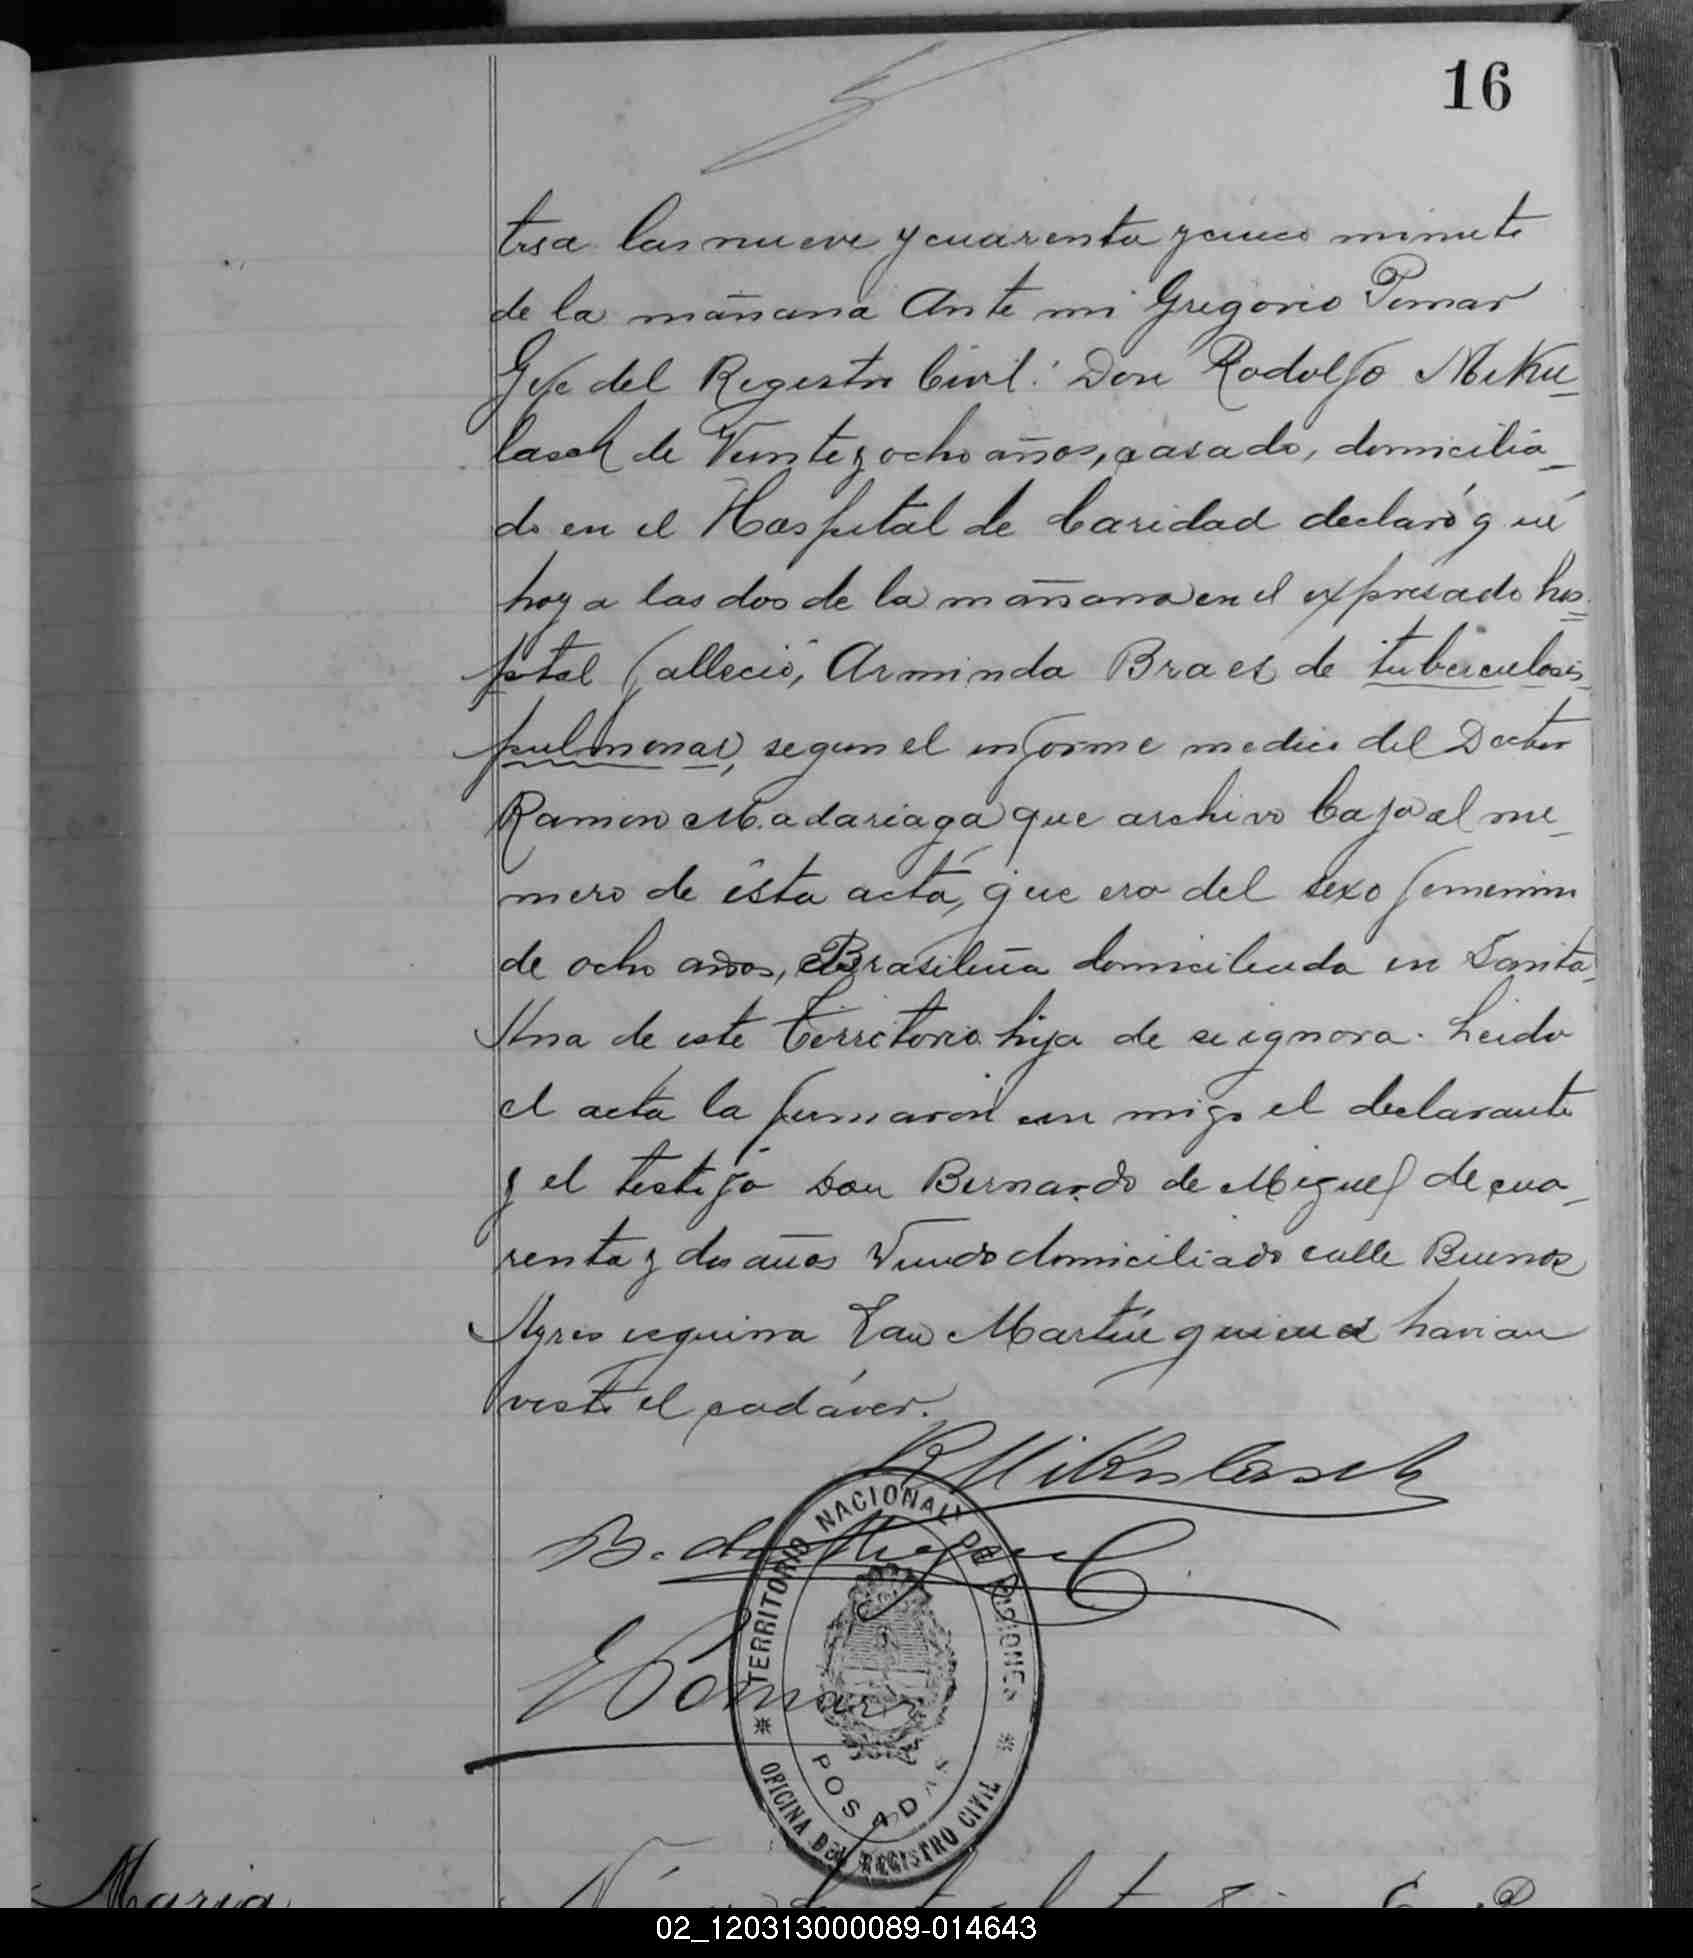 16
tres a las nueve y cuarenta y cinco minuto
de la mañana Ante mi Gregorio Pomar
Gefe del Registro Civil: Don Rodolfo Miku_
lasch de Veinte y ocho años, casado, domicilia_
do en el Hospital de Caridad declaró qué
hoy a las dos de la mañana en el expresado hos_
pital falleció, Arminda Braes de tuberculosis
pulmonar, segun el informe medico del Doctor
Ramon Madariaga que archivo bajo al nu_
mero de ésta acta, que era del sexo femenino
de ocho años, Brasileña domiciliada en Santa
Ana de este Territorio hija de se ignora. Leida
el acta la firmaron con migo el declarante
y el testigo Don Bernardo de Miguel de cua_
renta y dos años Viudo domiciliado calle Buenos
Ayres esquina San Martín quienes havian
visto el cadáver.
R Mikulasch
B. de Miguel
G Pomar
TERRITORIO NACIONAL DE MISIONES
POSADAS
OFICINA DEL REGISTRO CIVIL
Maria
02_120313000089-014643